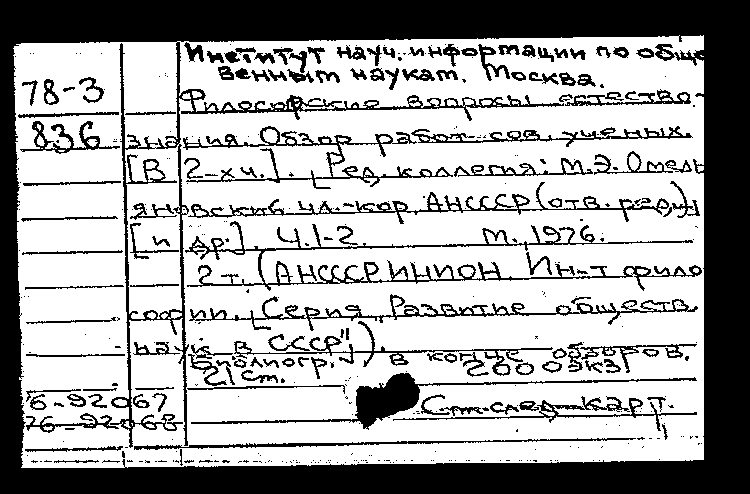 Институт науч. информации по обще
венным наукам. Москва.
78-3
Философские вопросы естество-
836
знания. Обзор работ сов. ученых.
[В 2-х ч.]. [Ред. коллегия: М.Э. Омель
яновский чл.-кор. АНСССР (отв. ред.)
[и др.]. Ч.1-2. М., 1976.
2 т. (АНСССР. ИНИОН. Ин-т фило
софии. [Серия „Развитие обществ.
наук в СССР"]).
Библиогр. в конце обзоров.
21 см. 2600 экз
6-92067
76-92068
См. след. карт.